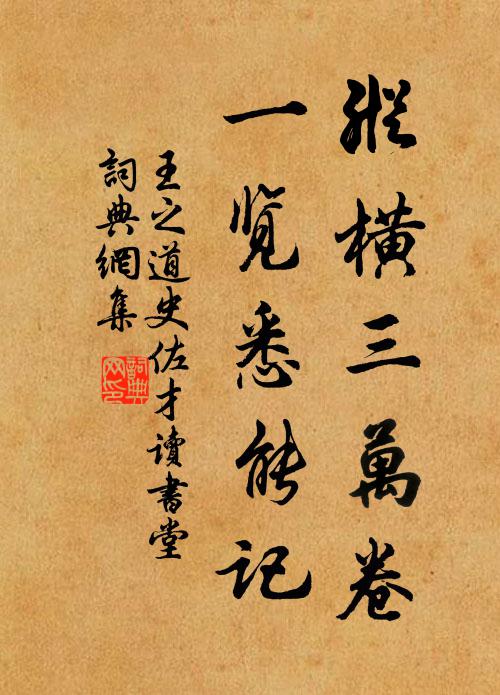 縱橫三萬卷
一覽悉能記
王之道史佐才讀書堂
詞典網集
詞典网印